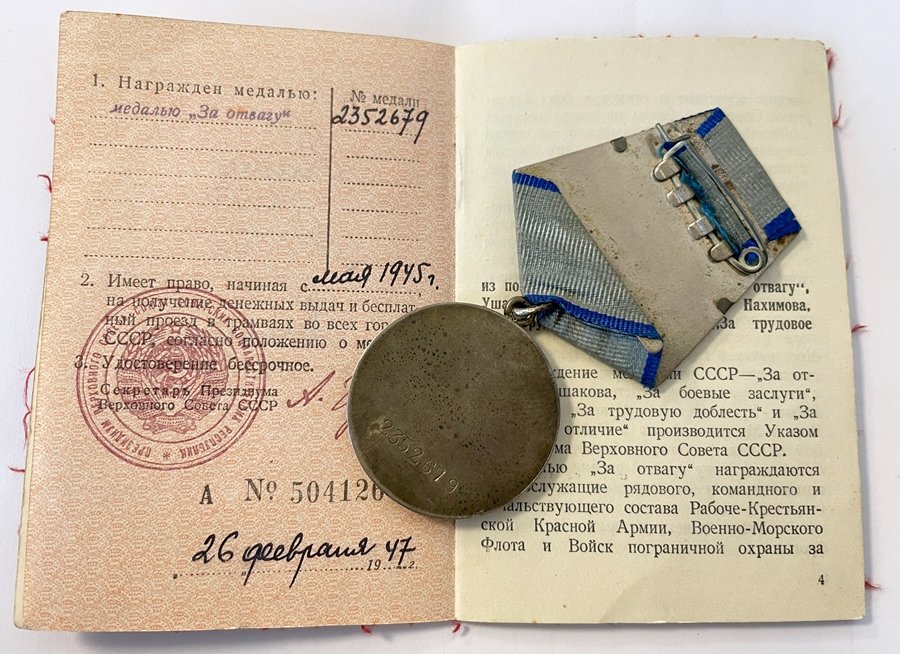 1. Награжден медалью:
№ медали
медалью „За отвагу“
2352679
2. Имеет право, начиная с мая 1945 г.
на получение денежных выдач и бесплат-
ный проезд в трамваях во всех гор
СССР, согласно положению о ме
3. Удостоверение бессрочное.
Секретарь Президиума
Верховного Совета СССР
А № 504126
26 февраля 1947 г.
2352679
из по
отвагу“,
Уша
Нахимова,
„За трудовое
ждение ме ии СССР—„За от-
шакова, „За боевые заслуги“,
„За трудовую доблесть“ и „За
отличие“ производится Указом
ма Верховного Совета СССР.
лью „За отвагу“ награждаются
служащие рядового, командного и
чальствующего состава Рабоче-Крестьян-
ской Красной Армии, Военно-Морского
Флота и Войск пограничной охраны за
4